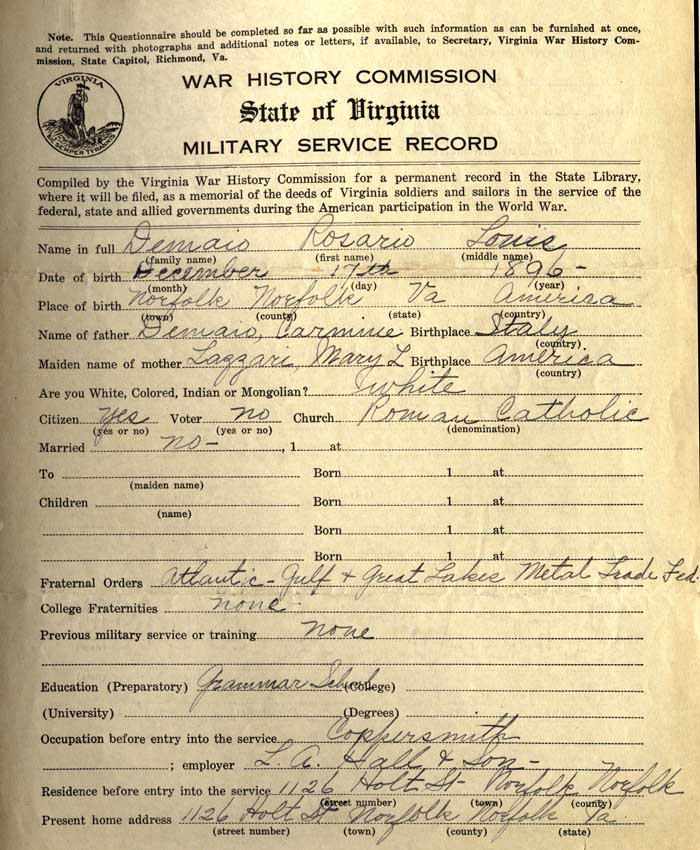 Note. This Questionnaire should be completed so far as possible with such information as can be furnished at once,
and returned with photographs and additional notes or letters, if available, to Secretary, Virginia War History Com-
mission, State Capitol, Richmond, Va.
VIRGINIA
SIC SEMPER TYRANNIS
WAR HISTORY COMMISSION
State of Virginia
MILITARY SERVICE RECORD
Compiled by the Virginia War History Commission for a permanent record in the State Library,
where it will be filed, as a memorial of the deeds of Virginia soldiers and sailors in the service of the
federal, state and allied governments during the American participation in the World War.
Name in full Demaio Rosario Louis
(family name) (first name) (middle name)
Date of birth December 17th 1896-
(month) (day) (year)
Place of birth Norfolk Norfolk Va America
(town) (county) (state) (country)
Name of father Demaio, Carmine Birthplace Italy
(country)
Maiden name of mother Lazzari, Mary L Birthplace America
(country)
Are you White, Colored, Indian or Mongolian? White
Citizen yes Voter no Church Roman Catholic
(yes or no) (yes or no) (denomination)
Married no- , 1 at
To Born 1 at
(maiden name)
Children Born 1 at
(name)
Born 1 at
Born 1 at
Fraternal Orders Atlantic - Gulf & Great Lakes Metal Trade Fed.
College Fraternities none.
Previous military service or training none
Education (Preparatory) Grammar School (College)
(University) (Degrees)
Occupation before entry into the service Coppersmith
; employer L. A. Hall & Son -
Residence before entry into the service 1126 Holt St- Norfolk Norfolk
(street number) (town) (county)
Present home address 1126 Holt St Norfolk Norfolk Va.
(street number) (town) (county) (state)